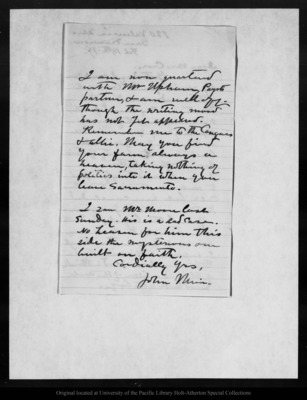 I am now quartered
with Mr Upham, Payots
partner, & am well off
though the writing mood
has not yet appeared.
Remember me to the Congars
& Allie. May you find
your farm always a
heaven, taking nothing of
politics into it when you
leave Sacramento.
I saw Mr. Moore last
Sunday. His is a sad case.
No heaven for him this
side the mysterious one
built on faith.
Cordially Yrs,
John Muir.
Original located at University of the Pacific Library Holt-Atherton Special Collections